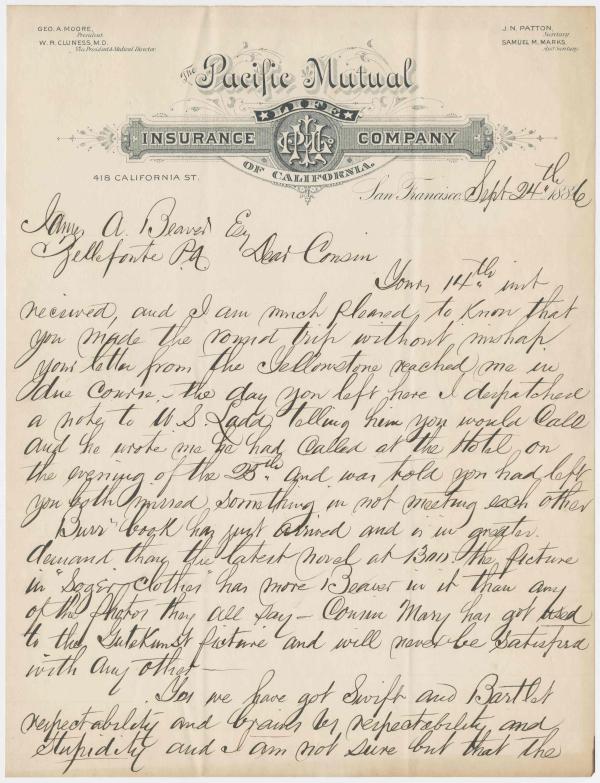 GEO. A. MOORE,
President.
W. R. CLUNESS, M.D.
Vice President & Medical Director.
J. N. PATTON,
Secretary
SAMUEL M. MARKS,
Asst Secretary
The Pacific Mutual
LIFE
INSURANCE COMPANY
OF CALIFORNIA.
418 CALIFORNIA ST.
San Francisco, Sept 24th 1886
James A. Beaver Esq
Bellefonte Pa Dear Cousin
Yours 14th inst
received, and I am much pleased to know that
you made the round trip without mishap
your letter from the Yellowstone reached me in
due course. the day you left here I despatched
a note to W. S. Ladd telling him you would Call
and he wrote me he had Called at the Hotel on
the evening of the 25th and was told you had left
you both missed something in not meeting each other
Burr book has just arrived and is in greater
demand than the latest novel at the picture
in "Soger clothes" has more Beaver in it than any
of the Photos they all say — Cousin Mary has got used
to the Gutekunst picture and will never be satisfied
with any other —
Yes we have got Swift and Bartlet
respectability and brains vs respectability and
stupidity and I am not sure but that the